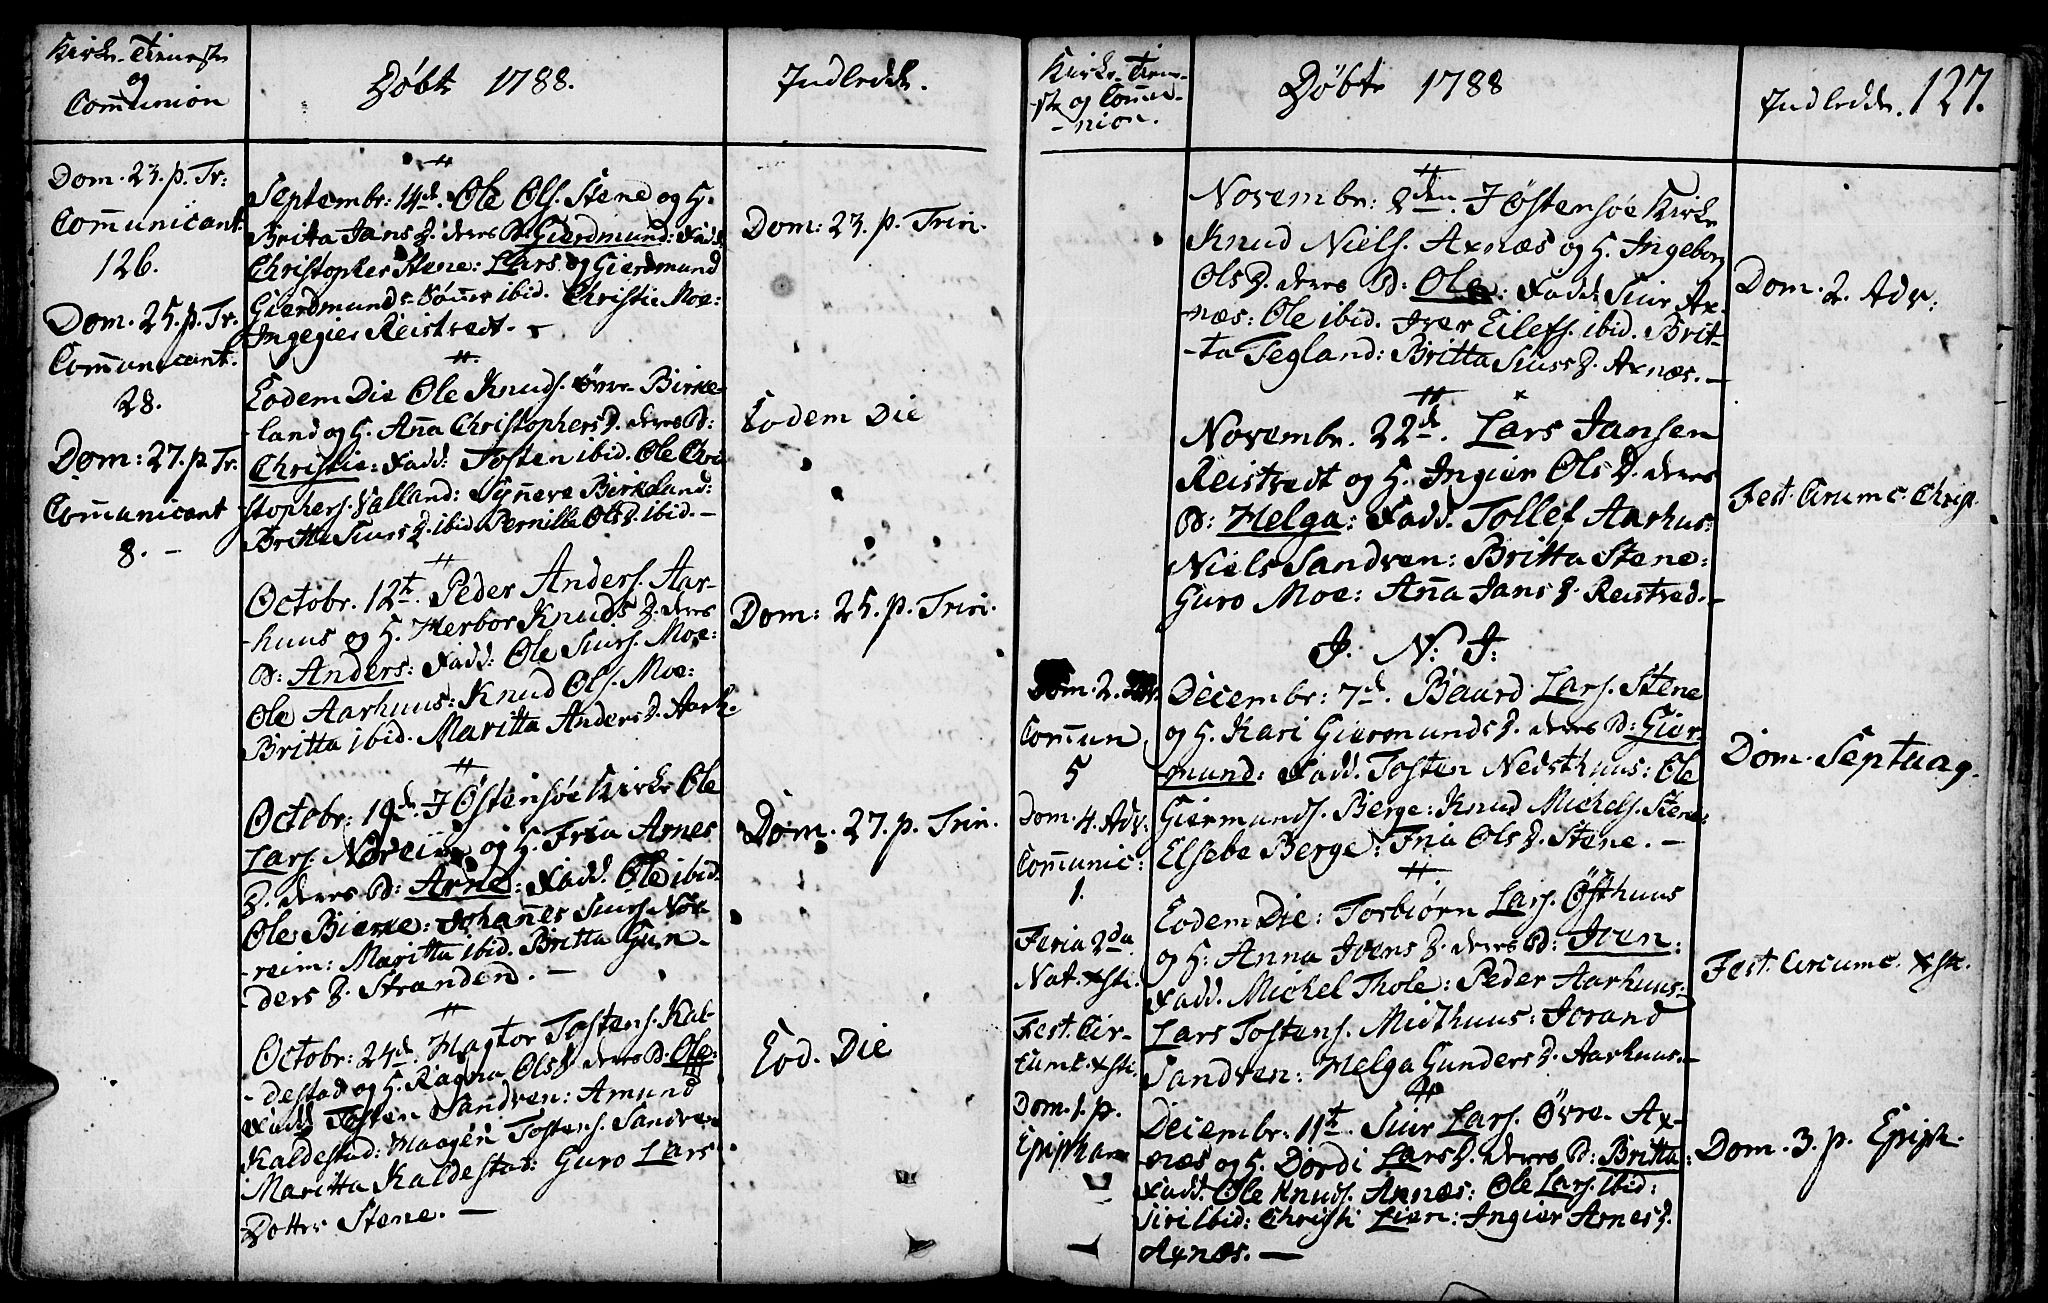 Kirke-Tieneste
og
Communion
Døbte 1788.
Indledde.
Dom. 23. p. Tr:
Communicant:
126.
Dom. 25. p. Tr.
Communicant.
28.
Dom: 27. p. Tr.
Communicant
8. -
Septembr: 14de. Ole Ols. Stene og H.
Britta Jans D. deres B. Gierdmund: Fadd.
Christopher Stene: Lars og Gierdmund
Gierdmunds-Sønner ibid. Christie Moe:
Ingegier Reistvedt. -
Eodem Die Ole Knuds. Øvre Birke-
-land og H. Anna Christophers D. deres B:
Christie: Fadd: Tosten ibid. Ole Chri
stophers. Valland: Synneve Birkeland:
Britta Siurs D. ibid Pernille Ols D. ibid. -
Octobr. 12te. Peder Anders. Aar-
-huus og H. Herbor Knuds D. deres
B: Anders: Fadd: Ole Siurs. Moe:
Ole Aarhuus: Knud Ols. Moe:
Britta ibid. Maritta Anders D. Aarh.
Octobr: 19de. I Østensøe Kirke Ole
Lars. Noreim og H. Fria Arnes
D. deres B: Arne: Fadd. Ole ibid.
Ole Bierke: Johannes Siurs. Nor-
-reim: Maritta ibid. Britta Gun-
-ders D. Stranden. -
Octobr: 24de. Magtor Tostens. Kal-
-destad og H. Ragna Ols D. deres B: Ole:
Fadd Tosten Sandven: Amund
Kaldestad: Maagen Tostens. Sandven
Maritta Kaldestad: Guro Lars
Dotter Stene. -
Dom: 23. p. Trin.
Eodem Die
Dom: 25. p. Trin.
Dom. 27. p. Trin.
Eod. Die
Kirke-Tiene-
ste og Commu-
-nion.
Døbte 1788
Indledde. 127.
Dom. 2. Adv.
Commun
5
Dom. 4. Adv.
Communic:
1.
Feria 2da
Nat. Xsti.
Fest. Cir-
cumc. Xsti.
Dom. 1. p.
Epiphan
Novembr: 8den. I Østensøe Kirke
Knud Niels. Axnæs og H. Ingeborg
Ols D. deres B: Ole: Fadd Siur Ax-
-næs: Ole ibid. Iver Eilefs. ibid. Brit-
-ta Tegland: Britta Siurs D. Axnæs. -
Novembr. 22de. Lars Jansen
Reistvedt og H. Ingier Ols D. deres
B: Helga: Fadd. Tollef Aarhus:
Niels Sandven: Britta Stene:
Guro Moe: Anna Jans D. Reistved. -
J. N. J:
Decembr: 7de. Baard Lars. Stene
og H. Kari Giermunds D. deres B: Gier
mund: Fadd. Tosten Nedsthuus: Ole
Giermunds. Berge: Knud Michels. Stene:
Elsebe Berge: Ina Ols D. Stene. -
Eodem Die: Torbiørn Lars. Østhuus
og H. Anna Ivers D. deres B: Iven:
Fadd. Michel Thole: Peder Aarhuus:
Lars Tostens. Midthuus: Jorand
Sandven: Helga Gunders D. Aarhuus. -
Decembr: 11te. Siur Lars. Øvre Ax-
-næs og H. Dordi Lars D. deres B: Britta:
Fadd. Ole Knuds. Axnæs: Ole Lars. ibid:
Siri ibid: Christi Lien: Ingier Arnes D.
Axnæs. -
Dom. 2. Adv:
Fest. Circumc. Christ.
Dom. Septuag.
Fest. Circumc. Xsti.
Dom. 3. p. Epiph.